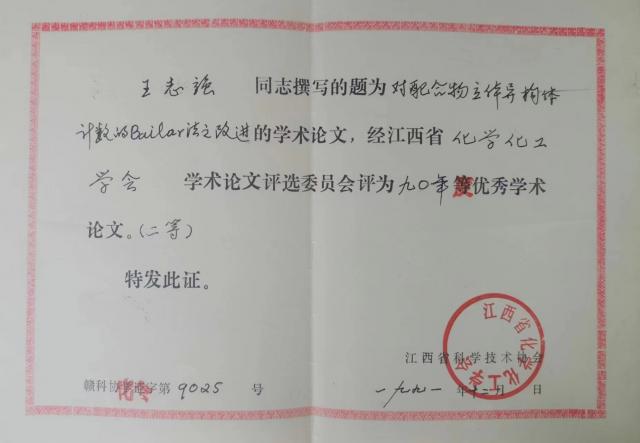 王志强 同志撰写的题为对配合物立体异构体
计数的Bailar法之改进的学术论文，经江西省化学化工
学会 学术论文评选委员会评为九〇年度优秀学术
论文。（二等）
特发此证。
江西省科学技术协会
江西省化学化工学会
赣科协化学证字第9025号
一九九一年十二月 日